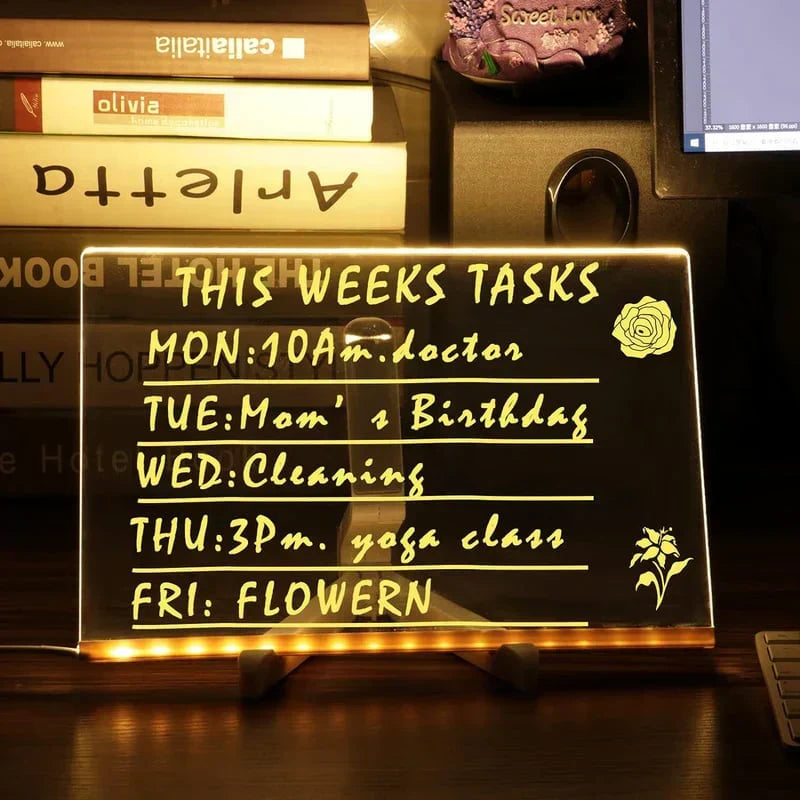 www.caliaitalia.com caliaitalia
olivia
home decoration
Arletta
THE HOTEL BOOK
Sweet Love
THIS WEEKS TASKS
MON:10Am.doctor
TUE:Mom's Birthday
WED:Cleaning
THU:3Pm. yoga class
FRI: FLOWERN